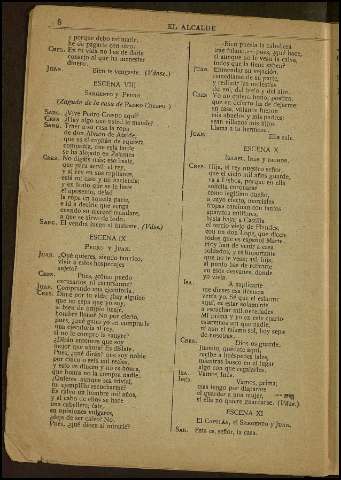 8
EL ALCALDE
y porque debo no matar,
he de pagarle con otro.
CRES. En mi vida no has de darle
consejo al que ha menester
dinero.
JUAN. Bien te vengaste. (Vanse.)
ESCENA VIII
SARGENTO y PEDRO
(Zaguán de la casa de PEDRO CRESPO)
SARG. ¿Vive Pedro Crespo aquí?
CRES. ¿Hay algo que usted le mande?
SARG. Traer a su casa la ropa
de don Álvaro de Ataide,
que es el capitán de aquesta
compañía, que esta tarde
se ha alojado en Zalamea
CRES. No digáis más: eso baste,
que para servir al rey,
y al rey en sus capitanes,
está mi casa y mi hacienda;
y en tanto que se le hace
el aposento, dejad
la ropa en aquella parte,
e id a decirle que venga
cuando su merced mandare,
a que se sirva de todo.
SARG. Él vendrá luego al instante. (Vase.)
ESCENA IX
PEDRO y JUAN.
JUAN. ¿Qué quieres, siendo tan rico,
vivir a estos hospedajes
sujeto?
CRES. Pues, ¿cómo puedo
excusarlos ni excusarme?
JUAN. Comprando una ejecutoria.
CRES. Dime por tu vida: ¿hay alguien
que no sepa que yo soy,
si bien de limpio linaje,
hombre llano? No por cierto,
pues, ¿qué gano yo en comprarle
una ejecutoria al rey,
si no le compro la sangre?
¿Dirán entonces que soy
mejor que ahora? Es dislate.
Pues, ¿qué dirán? que soy noble
por cinco o seis mil reales,
y esto es dinero y no es honra,
que honra no la compra nadie.
¿Quieres, aunque sea trivial,
un ejemplillo escucharme?
Es calvo un hombre mil años,
y al cabo de ellos se hace
una cabellera; éste,
en opiniones vulgares,
¿deja de ser calvo? No.
Pues, ¿qué dicen al mirarle?
"Bien puesta la cabellera
trae fulano"; pues, ¿qué hace,
si aunque no le vean la calva,
todos que la tiene saben?
JUAN. Enmendar su vejación,
remediarse de su parte,
y redimir las molestias
de sol, del hielo y del aire.
CRES. Yo no quiero honor postizo,
que el defecto ha de dejarme
en casa, villanos fueron
mis abuelos y mis padres;
sean villanos mis hijos
Llama a tu hermana.
JUAN. Ella sale.
ESCENA X
ISABEL, INÉS y DICHOS.
CRES. Hija, el rey nuestro señor
que el cielo mil años guarde,
va a Lisboa, porque en ella
solicita coronarse
como legítimo dueño,
a cuyo efecto, marciales
tropas caminan con tantos
aparatos militares,
hasta bajar a Castilla
el tercio viejo de Flandes,
con un don Lope, que dicen
todos que es español Marte.
Hoy han de venir a casa
soldados, y es importante
que no te vean; así hija,
al punto has de retirarte
en esos desvanes, donde
yo vivía.
ISA. A suplicarte
me dieses esa licencia
venía yo. Sé que el estarme
aquí, es estar solamente
a escuchar mil necedades.
Mi prima y yo en este cuarto
estaremos sin que nadie,
ni aun el mismo sol, hoy sepa
de nosotras.
CRES. Dios os guarde.
Juanito, quédate aquí,
recibe a huéspedes tales,
mientras busco en el lugar
algo con que regalarles.
ISA. Vamos, Inés.
INÉS. Vamos, prima;
mas tengo por disparate
el guardar a una mujer,
si ella no quiere guardarse. (Vanse.)
ESCENA XI
EL CAPITÁN, el SARGENTO y JUAN.
SAR. Esta es, señor, la casa.